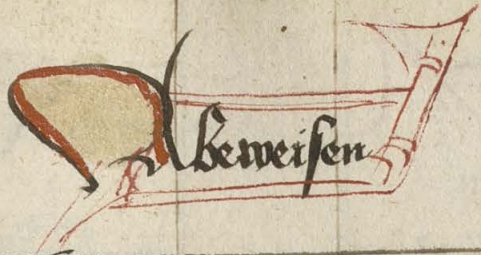 Abeweiſen